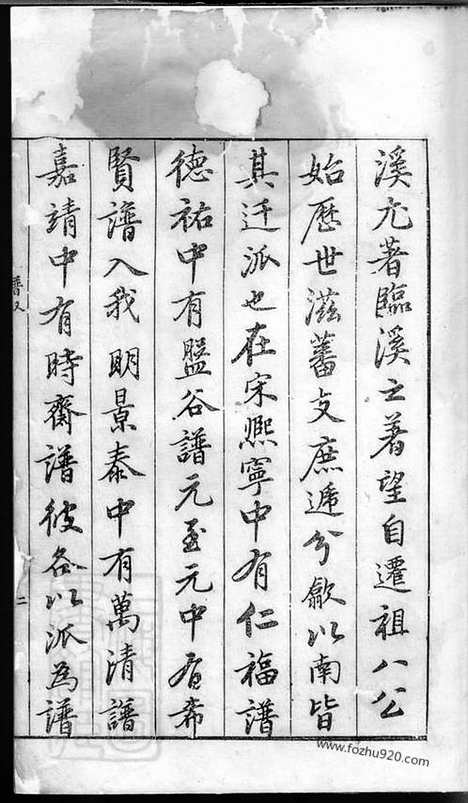 溪尤著臨溪之著望自遷祖八公
始歷世滋蕃支庶遞分歙以南皆
其迁派也在宋熙寧中有仁福譜
德祐中有盤谷譜元至元中有希
賢譜入我 明景泰中有萬清譜
嘉靖中有時齋譜彼各以派為譜
二
www.fozhu920.com